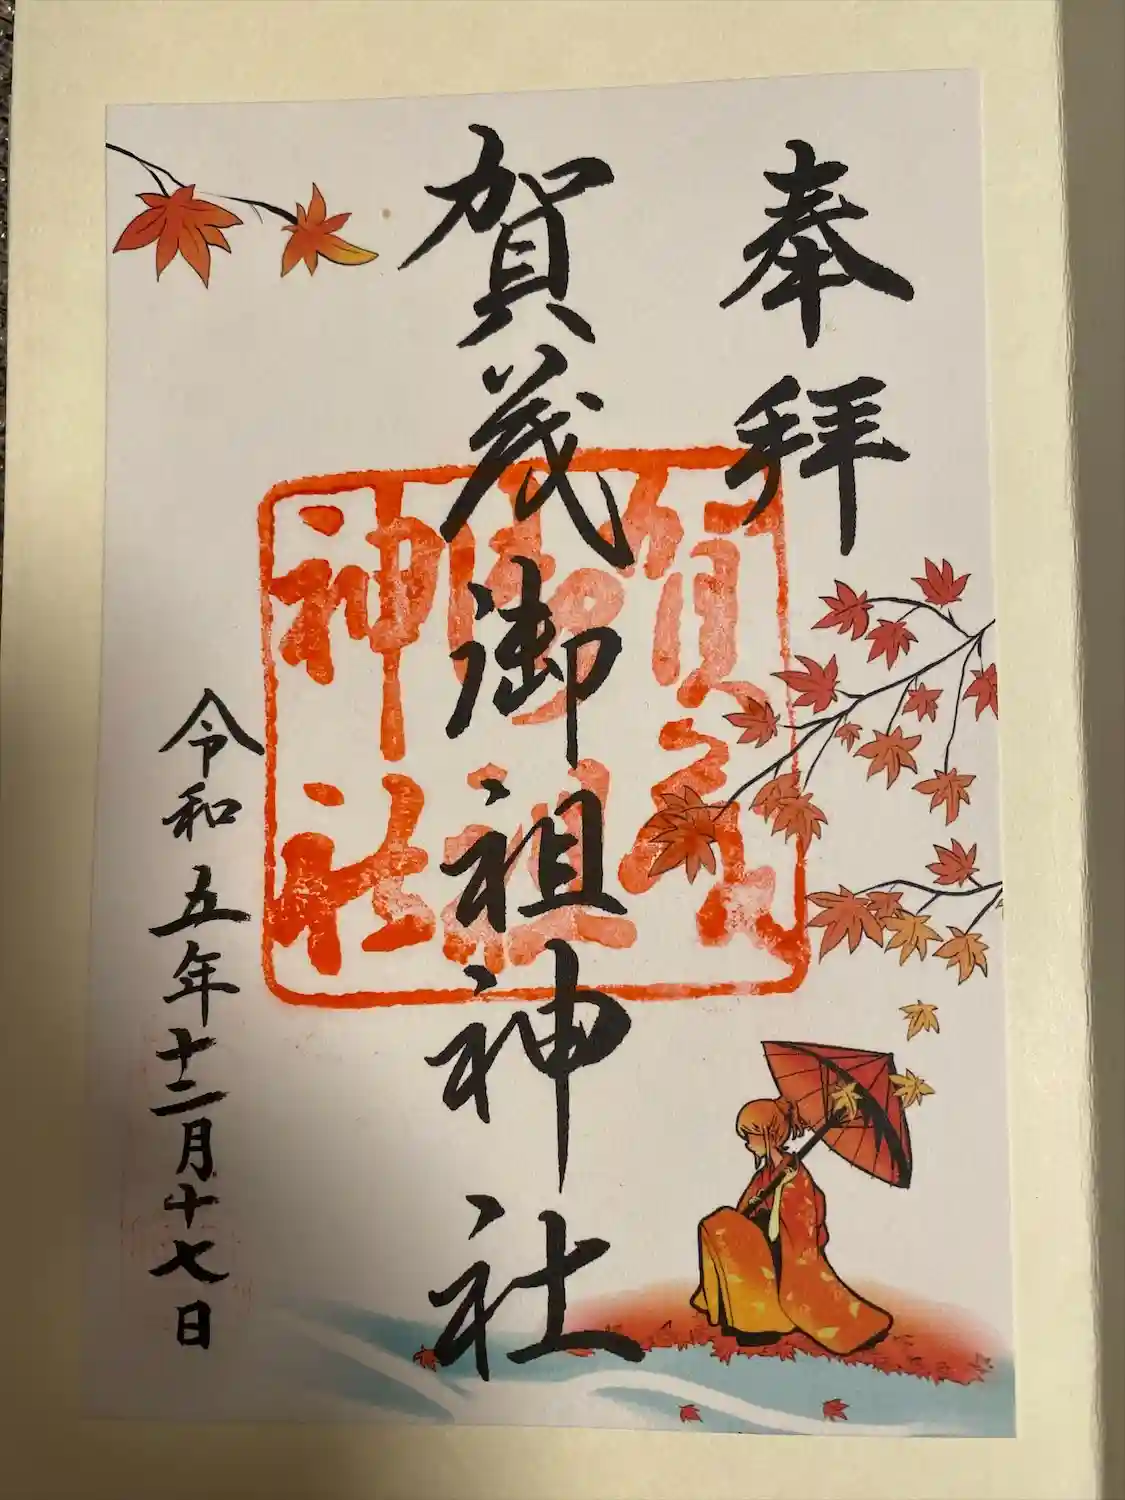 奉拝
賀茂御祖神社
賀茂御祖神社
令和五年十二月十七日